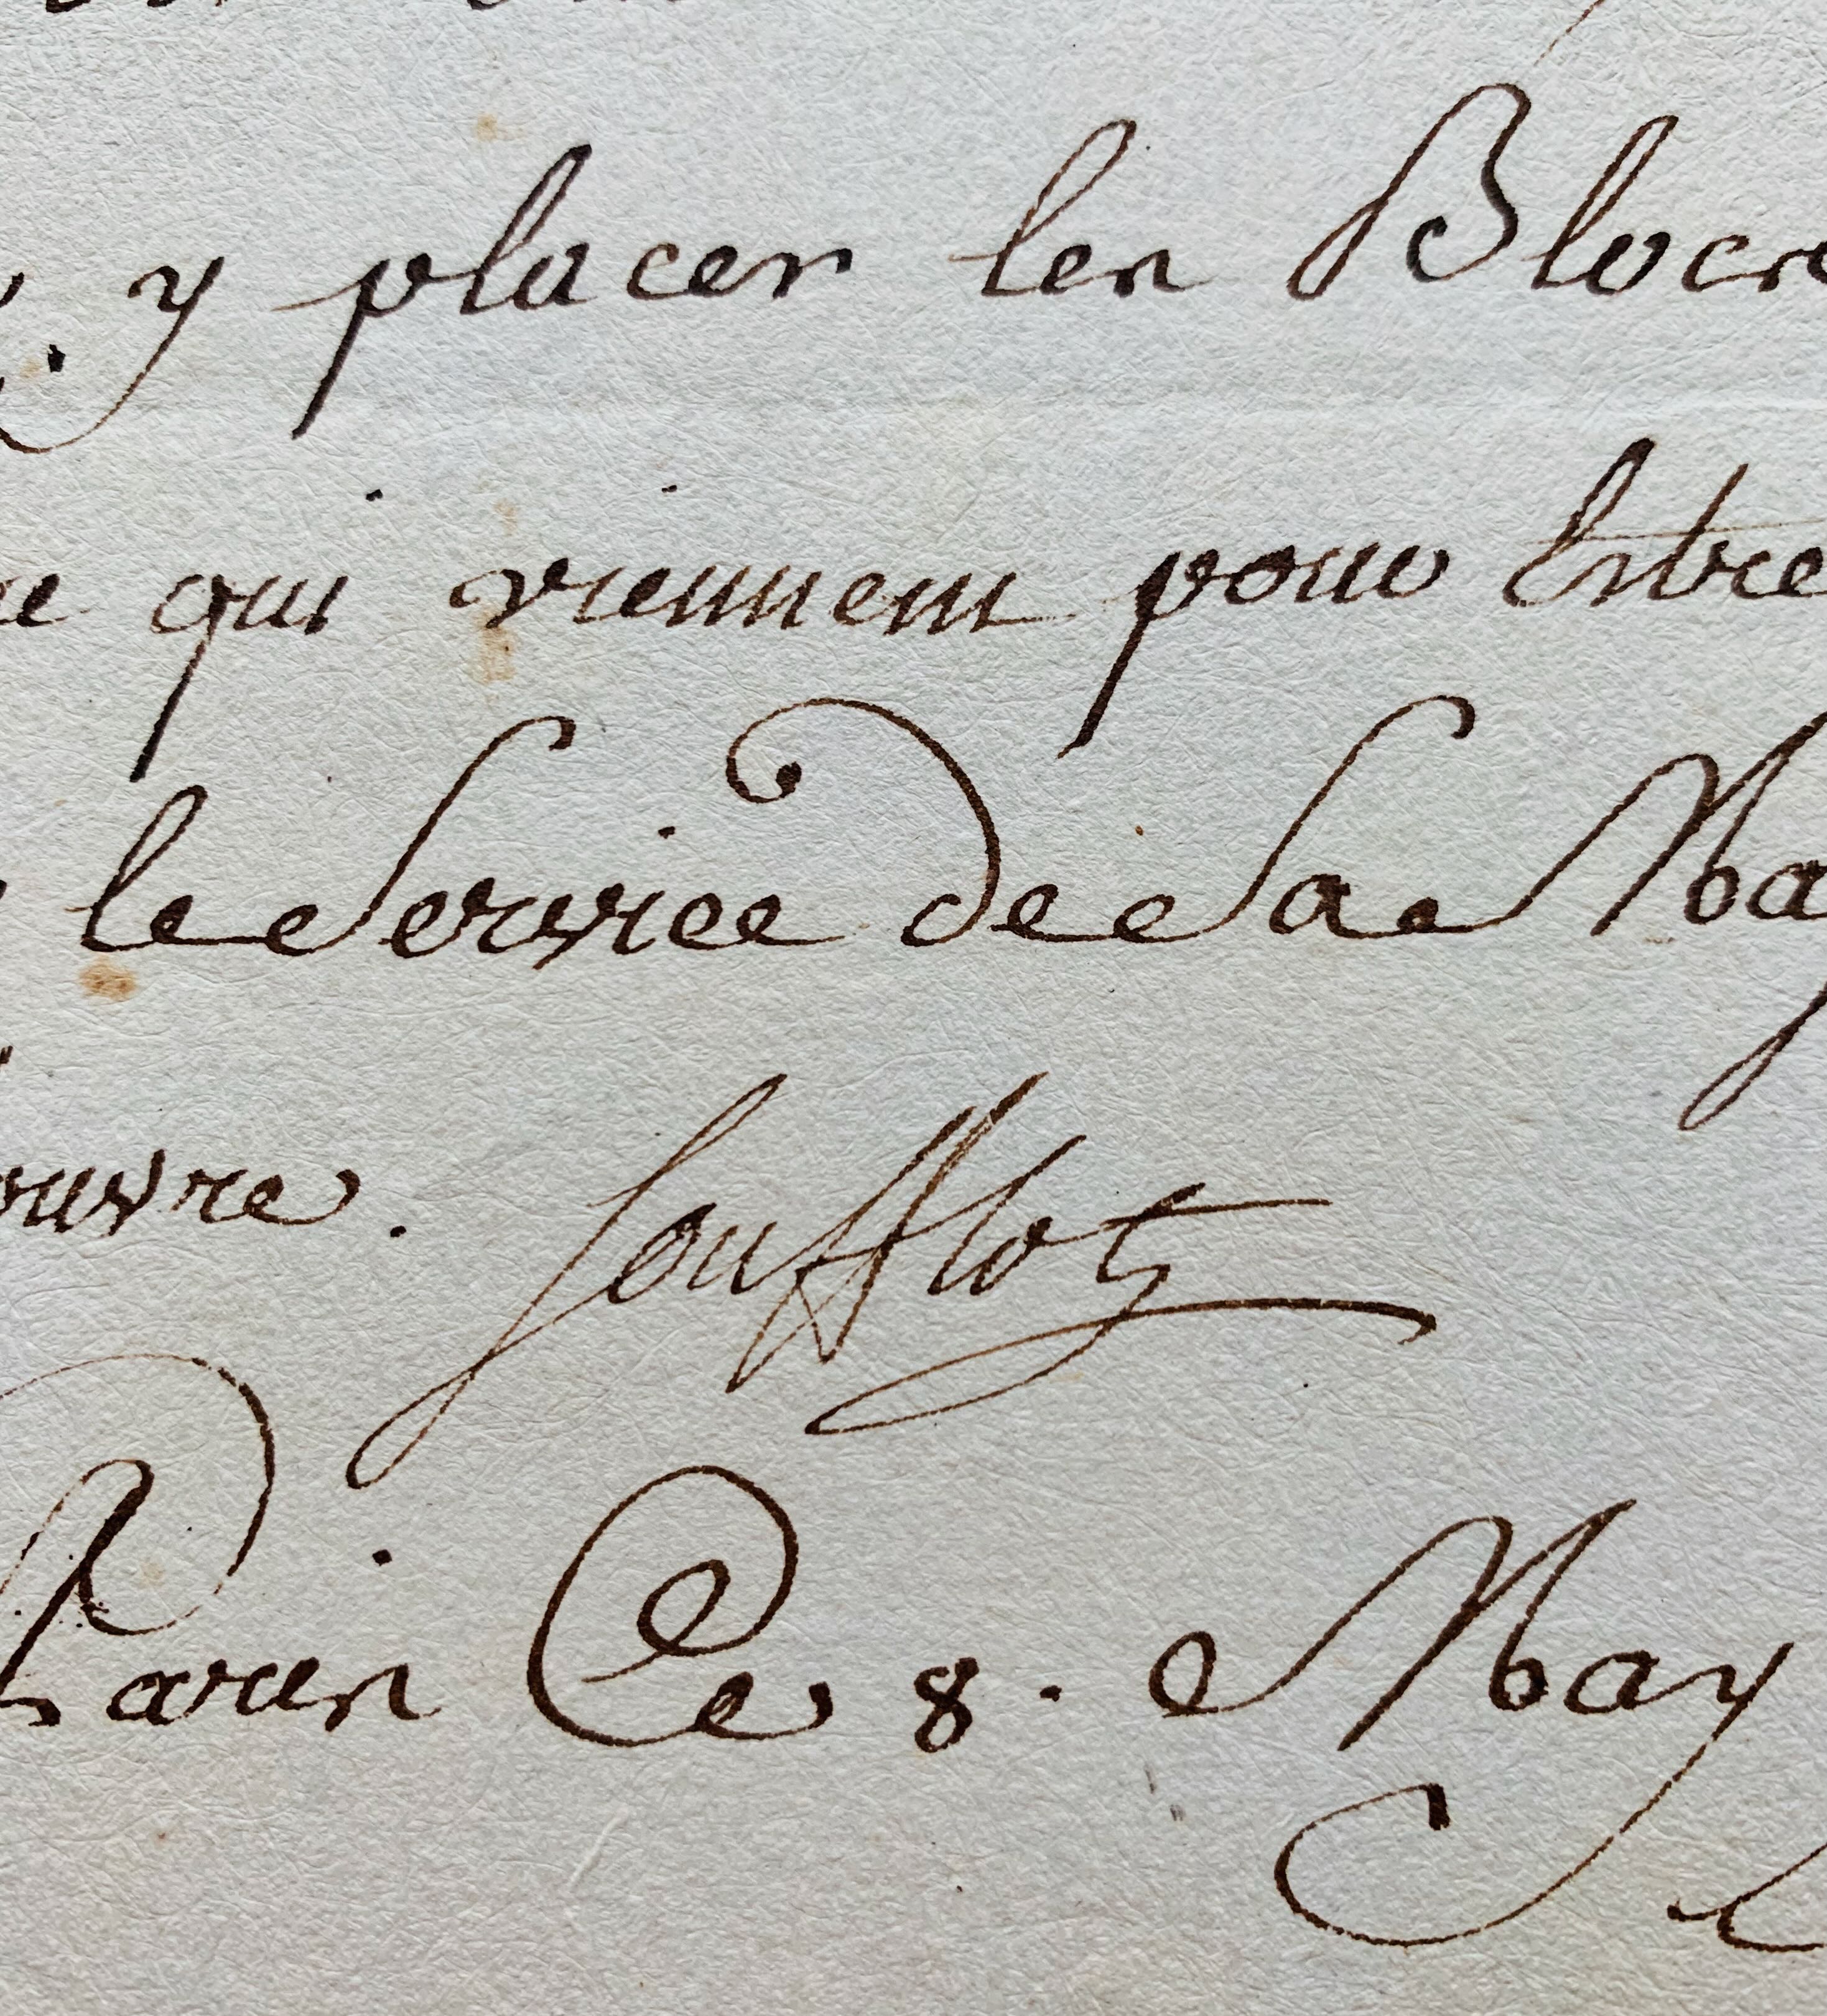 y placer les Blocs
qui viennent pour Entre
le Service de Sa Maj
ouvre. Soufflot
Paris Ce 8. May